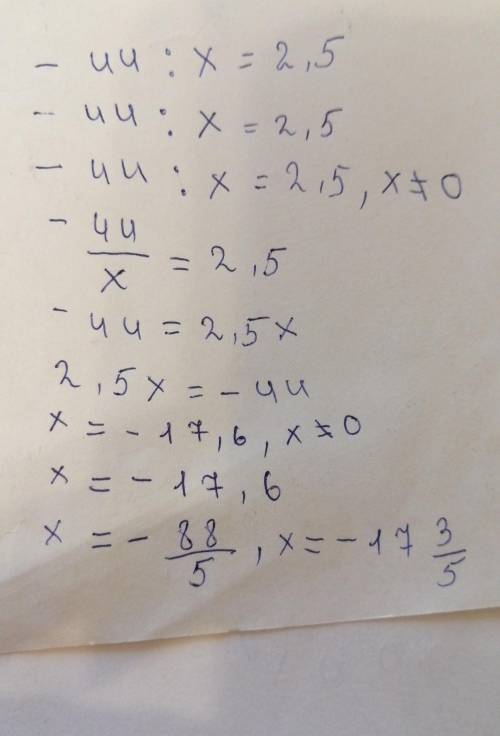 - 44 : x = 2,5
- 44 : x = 2,5
- 44 : x = 2,5, x ≠ 0
- 44/x = 2,5
- 44 = 2,5x
2,5x = - 44
x = - 17,6, x ≠ 0
x = - 17,6
x = - 88/5, x = - 17 3/5